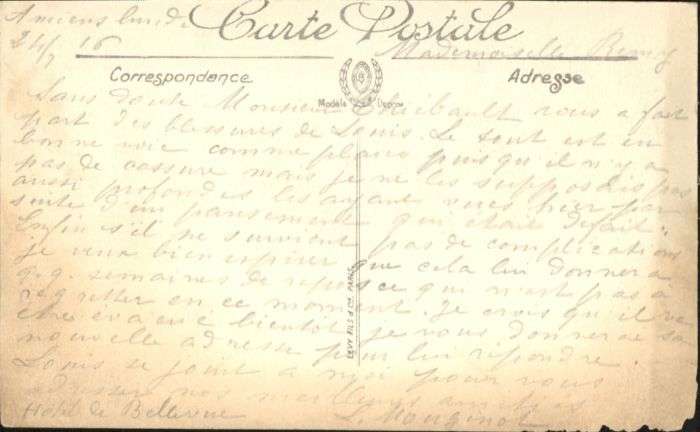 Amiens lundi
24/7 16
Carte Postale
Mademoiselle Remy
Correspondance
Adresse
Modèle Déposé
Sans doute Monsieur Thiébault vous a fait
part des blessures de Louis. Le tout est en
bonne voie comme plaies puisqu'il n'y a
pas de cassure mais je ne les supposais pas
aussi profondes les ayant vues hier par
suite d'un pansement qui était défait.
Enfin s'il ne survient pas de complications
je veux bien espérer que cela lui donnera
q.q. semaines de repos ce qui n'est pas à
regretter en ce moment. Je crois qu'il va
être évacué bientôt je vous donnerai sa
nouvelle adresse pour lui répondre.
Louis se joint à moi pour vous
adresser nos meilleurs amitiés
Hôtel de Bellevue
L. Mougenot
LEVY FILS & Cie PARIS